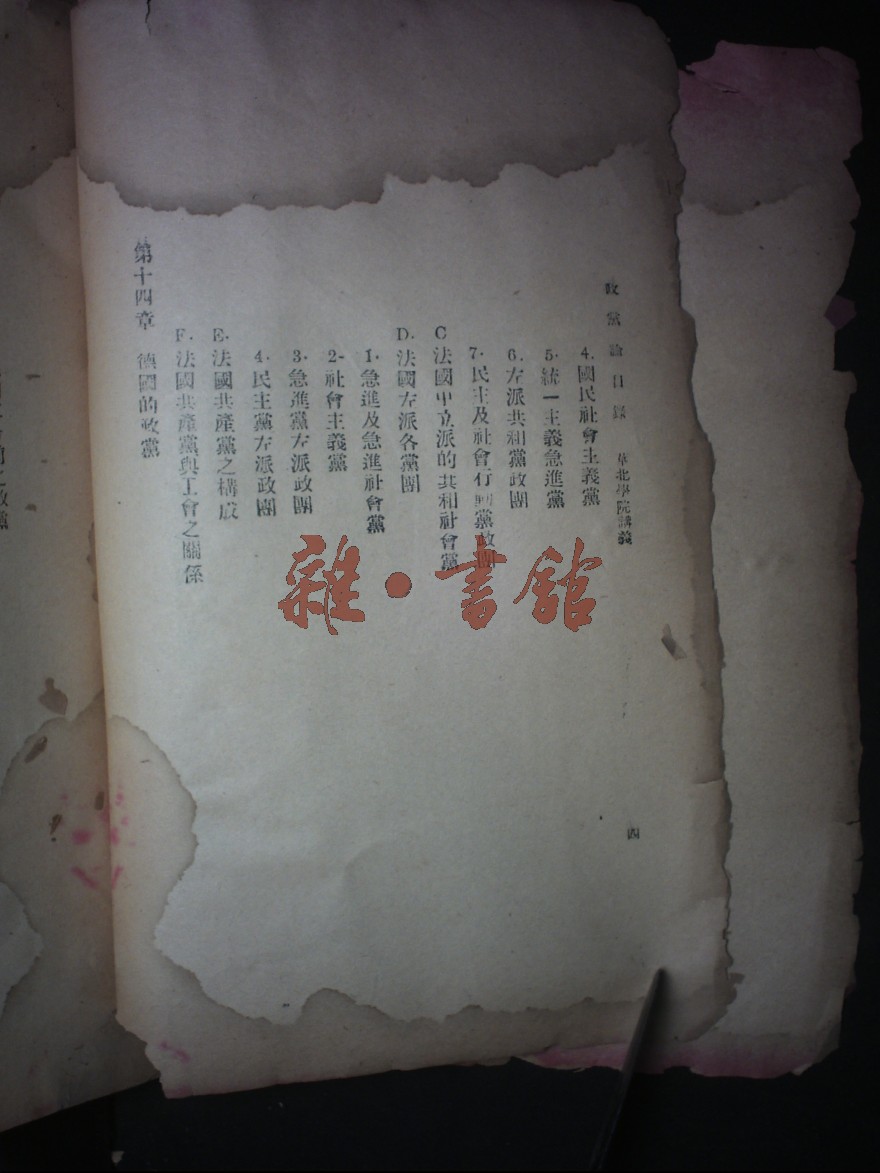 政黨論目錄　華北學院講義　四
4.國民社會主義黨
5.統一主義急進黨
6.左派共和黨政團
7.民主及社會行動黨政團
C法國中立派的共和社會黨
D.法國左派各黨團
1.急進及急進社會黨
2-社會主義黨
3.急進黨左派政團
4.民主黨左派政團
E.法國共產黨之構成
F.法國共產黨與工會之關係
第十四章　德國的政黨
雜·書館